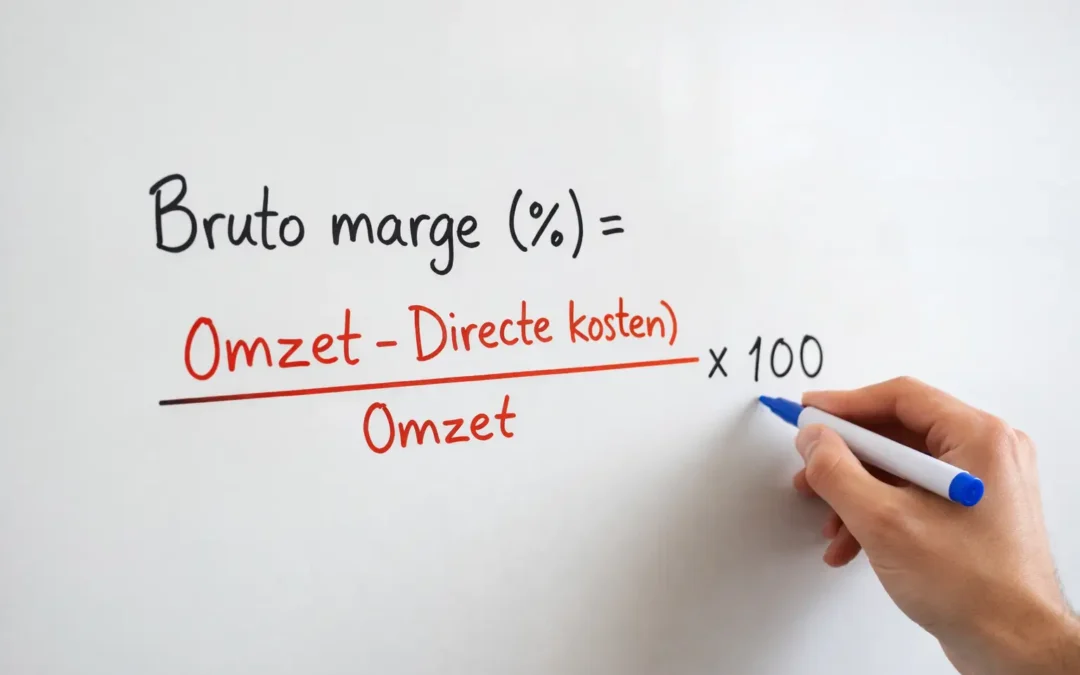 Bruto marge (%) =
Omzet - Directe kosten)
x 100
Omzet